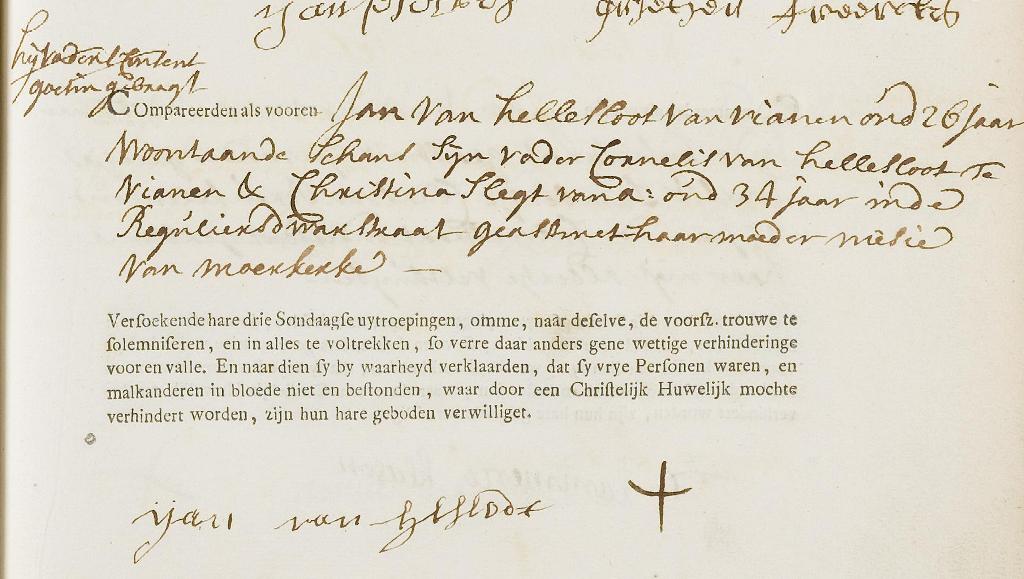 hij vaders Consent
goet in gebragt
COmpareerden als vooren Jan Van hellesloot van vianen oud 26 Jaar
Woont aande Schans Sijn vader Cornelis van hellesloot Te
Vianen & Christina Slegt van A: oud 34 jaar inde
Reguliersdwarsstraat geast met haar moeder
Van moerkerke
Versoekende hare drie Sondaagse uytroepingen, omme, naar deselve, de voorsz. trouwe te
solemniseren, en in alles te voltrekken, so verre daar anders gene wettige verhinderinge
voor en valle. En naar dien sy by waarheyd verklaarden, dat sy vrye Personen waren, en
malkanderen in bloede niet en bestonden, waar door een Christelijk Huwelijk mochte
verhindert worden, zijn hun hare geboden verwilliget.
yan van